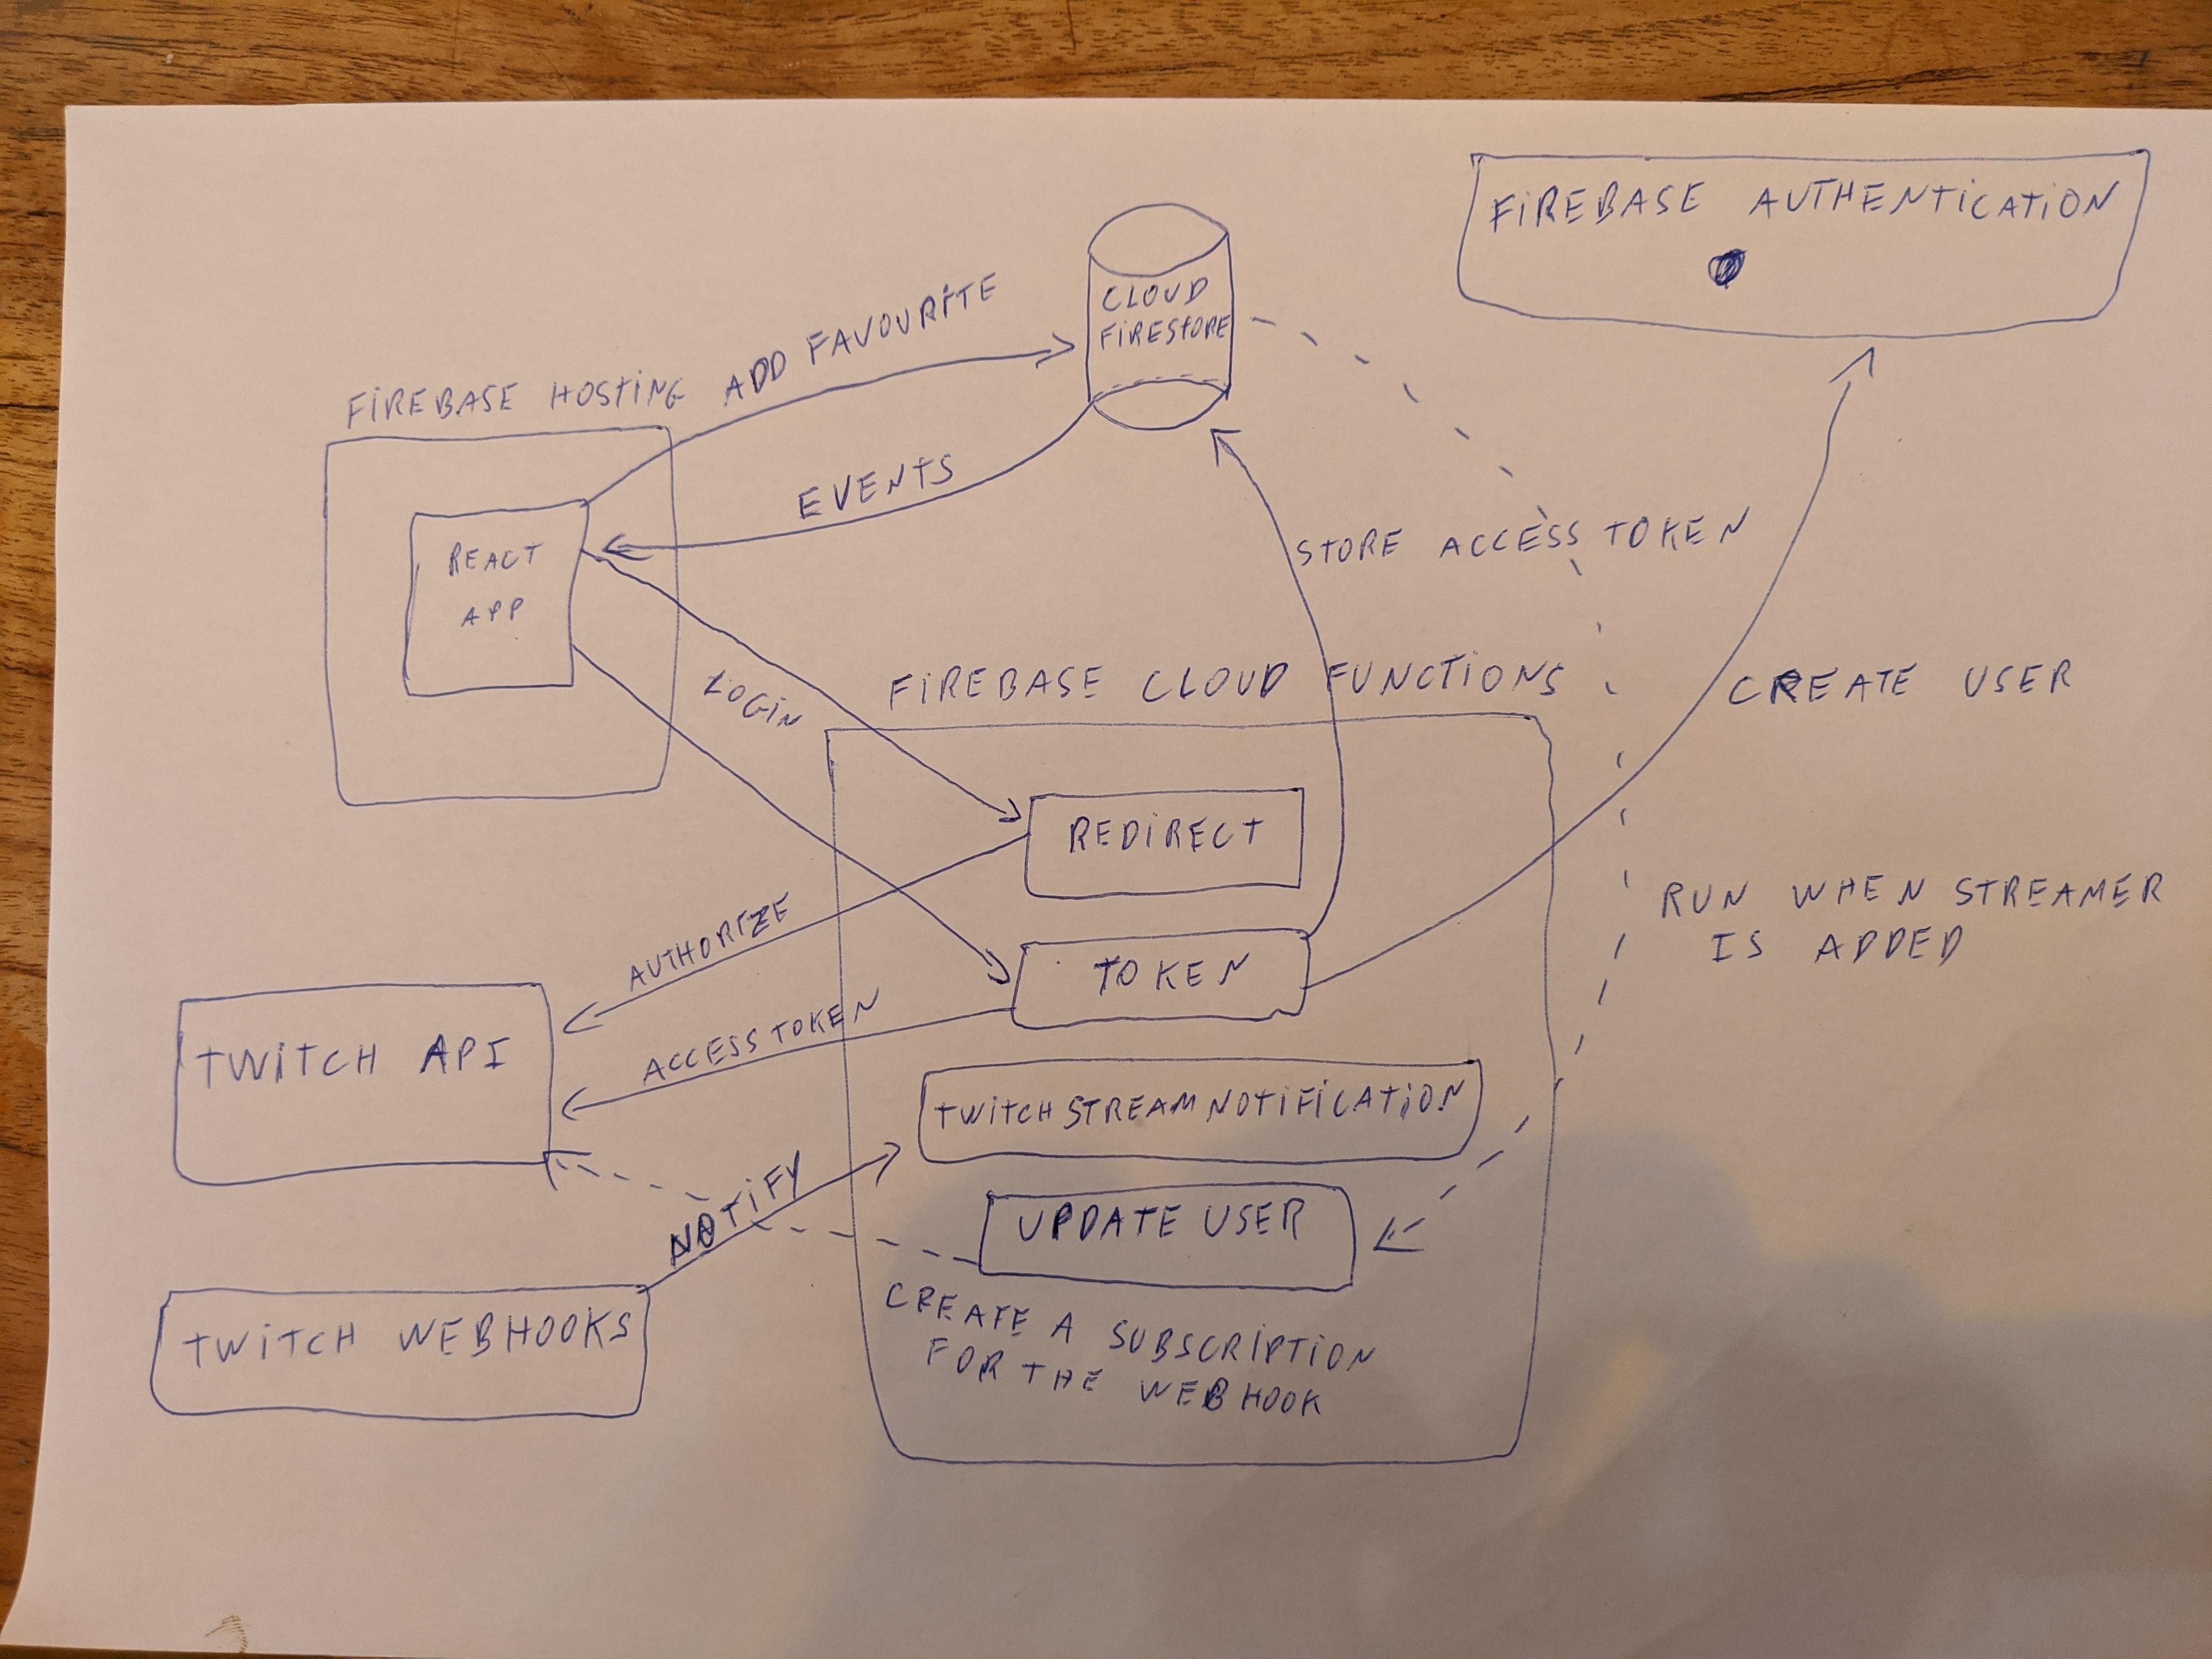 FIREBASE AUTHENTICATION
CLOUD
FIRESTORE
ADD FAVOURITE
FIREBASE HOSTING
EVENTS
REACT
APP
STORE ACCESS TOKEN
LOGIN
FIREBASE CLOUD FUNCTIONS
CREATE USER
REDIRECT
RUN WHEN STREAMER
IS ADDED
AUTHORIZE
TOKEN
ACCESS TOKEN
TWITCH API
TWITCHSTREAMNOTIFICATION
NOTIFY
UPDATE USER
TWITCH WEBHOOKS
CREATE A SUBSCRIPTION
FOR THE WEBHOOK